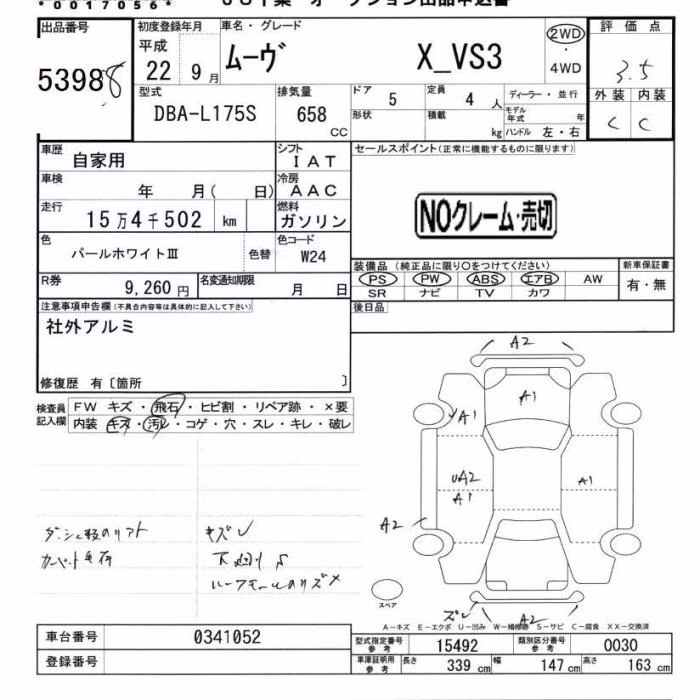 *0017056*
出品番号
5398 8
初度登録年月
平成
22 9月
車名・グレード
ムーヴ X_VS3
2WD
4WD
評価点
3.5
外装 内装
C C
型式
DBA-L175S
排気量
658 CC
ドア
5
定員
4 人
形状
積載
kg
ディーラー・並行
モデル年式 年
ハンドル 左・右
車歴
自家用
シフト
IAT
車検
年 月( 日)
冷房
AAC
走行
15万4千502 km
燃料
ガソリン
色
パールホワイトⅢ
色替
色コード
W24
R券
9,260円
名変通知期限
月 日
セールスポイント(正常に機能するものに限ります)
NOクレーム・売切
装備品(純正品に限り○をつけてください)
PS PW ABS エアB AW
SR ナビ TV カワ
新車保証書
有・無
後日品
注意事項申告欄(不具合内容等は具体的に記入して下さい)
社外アルミ
修復歴 有〔箇所 〕
検査員記入欄
FW キズ・飛石・ヒビ割・リペア跡・×要
内装 キズ・汚レ・コゲ・穴・スレ・キレ・破レ
カーペット
キズ
A2
A1
A1
UA2
A1
A1
A2
スペア
ズレ
A2
A-キズ E-エクボ U-凹み W-補修跡 S-サビ C-腐食 XX-交換済
車台番号
0341052
登録番号
型式指定番号 参考
15492
類別区分番号 参考
0030
車庫証明用 参考
長さ 339 cm 幅 147 cm 高さ 163 cm